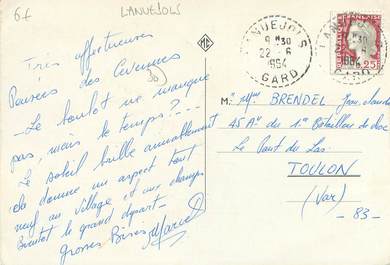 6f
LANUEJOLS
LANUEJOLS
9 H30
22-6
1964
GARD
FRANÇAISE
0,25
Très affectueuses
Pensées des Cévennes
30
- Le boulot ne manque
pas, mais le temps? ---
Le soleil brille annuellement
et donne un aspect tout
neuf au village et aux champs
Bientot le grand départ
Grosses Bises Marcel
MC
M. Mme BRENDEL Jean-Claude
45 Av du 1er Bataillon de choc
Le Pont du Las
TOULON
(Var)
- 83 -